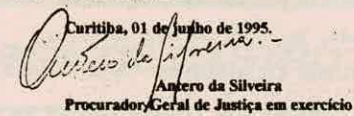 Curitiba, 01 de junho de 1995.
Antero da Silveira.-
Antero da Silveira
Procurador Geral de Justiça em exercício